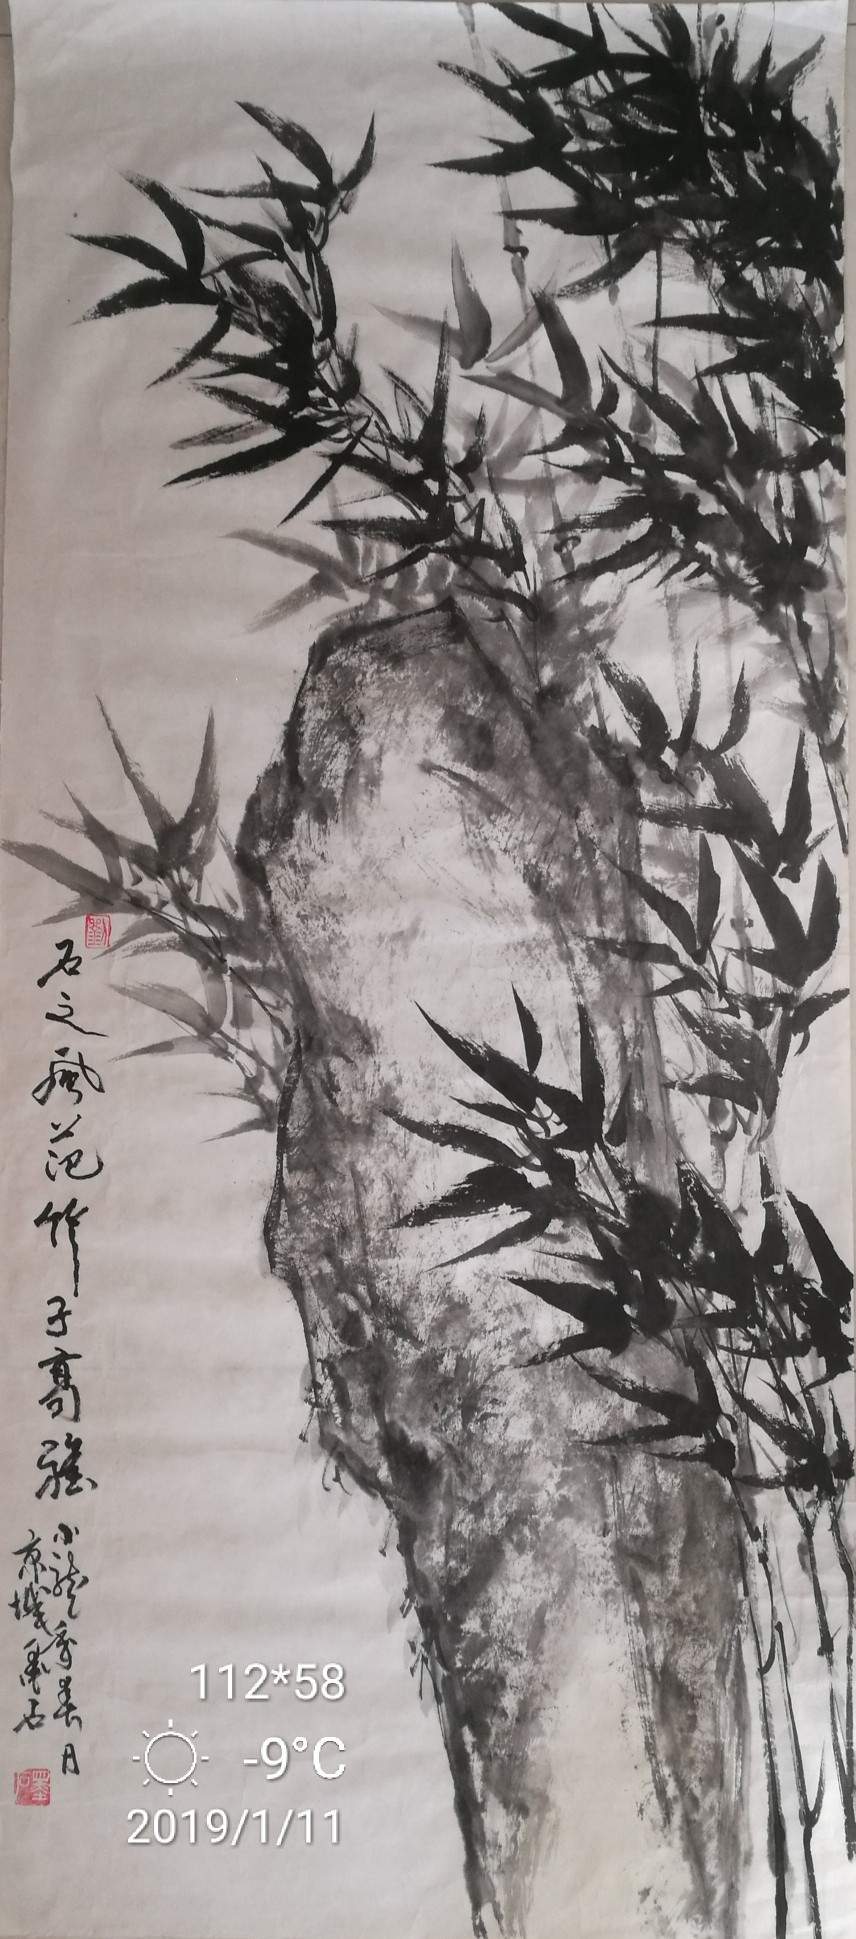 石之风范竹子高雅
小龙季春月
京城墨石
墨石
112*58
-9°C
2019/1/11